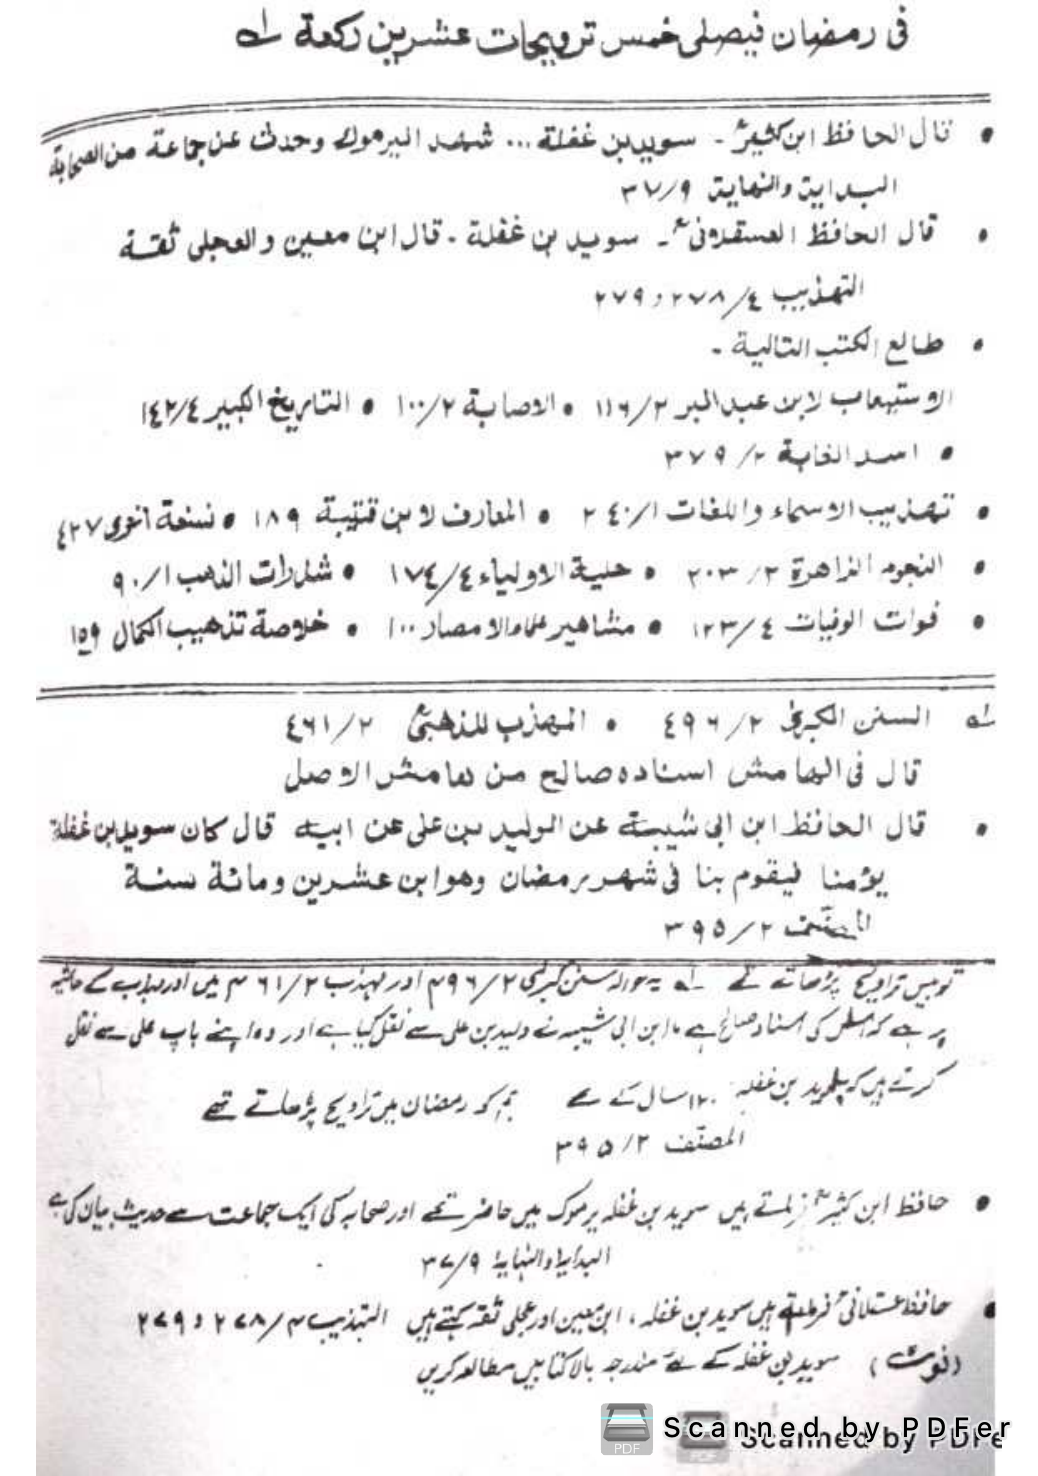 فى رمضان فيصلى خمس ترويحات عشرين ركعة له
• قال الحافظ ابن كثيرؒ ۔ سويد بن غفلة ... شهد اليرموك وحدث عن جماعة من الصحابة
البداية والنهاية ٩/ ٣٧
• قال الحافظ العسقلانىؒ ۔ سويد بن غفلة ۔ قال ابن معين والعجلى ثقة
التهذيب ٤/ ٢٧٨ و ٢٧٩
• طالع الكتب التالية ۔
الاستيعاب لابن عبد البر ٢/ ١١٦ • الاصابة ٢/ ١٠٠ • التاريخ الكبير ٤/ ١٤٢
• اسد الغابة ٢/ ٣٧٩
• تهذيب الاسماء واللغات ١/ ٢٤٠ • المعارف لابن قتيبة ١٨٩ • نسخة اخرى ٤٢٧
• النجوم الزاهرة ٢/ ٢٠٣ • حلية الاولياء ٤/ ١٧٤ • شذرات الذهب ١/ ٩٠
• فوات الوفيات ٤/ ١٢٣ • مشاهير علماء الامصار ١٠٠ • خلاصة تذهيب الكمال ١٥٩
له السنن الكبرىٰ ٢/ ٤٩٦ • المهذب للذهبىؒ ٢/ ٤٦١
قال فى الهامش اسناده صالح من هامش الاصل
• قال الحافظ ابن ابى شيبة عن الوليد بن على عن ابيه قال كان سويد بن غفلة
يؤمنا فيقوم بنا فى شهر رمضان وهو ابن عشرين ومائة سنة
المصنف ٢/ ٣٩٥
تراویح پڑھاتے تھے له یہ حوالہ سنن کبریٰ ۲/ ۴۹۶ اور مہذب ۲/ ۴۶۱ میں اور مہذب کے حاشیہ
پر ہے کہ اسکی اسناد صالح ہے ۔ ابن ابی شیبہ نے ولید بن علی سے نقل کیا ہے اور وہ اپنے باپ علی سے نقل
کرتے ہیں کہ سوید بن غفلہ ۱۲۰ سال کے تھے ہم کو رمضان میں تراویح پڑھاتے تھے
المصنف ۲/ ۳۹۵
• حافظ ابن کثیرؒ فرماتے ہیں سوید بن غفلہ یرموک میں حاضر تھے اور صحابہ کی ایک جماعت سے حدیث بیان کی ہے
البدایة والنہایة ۹/ ۳۷
• حافظ عسقلانیؒ فرماتے ہیں سوید بن غفلہ ، ابن معین اور عجلی ثقہ کہتے ہیں التہذیب ۴/ ۲۷۸ و ۲۷۹
(نوٹ) سوید بن غفلہ کے لئے مندرجہ بالا کتابیں مطالعہ کریں
Scanned by PDFer
Scanned by PDFe